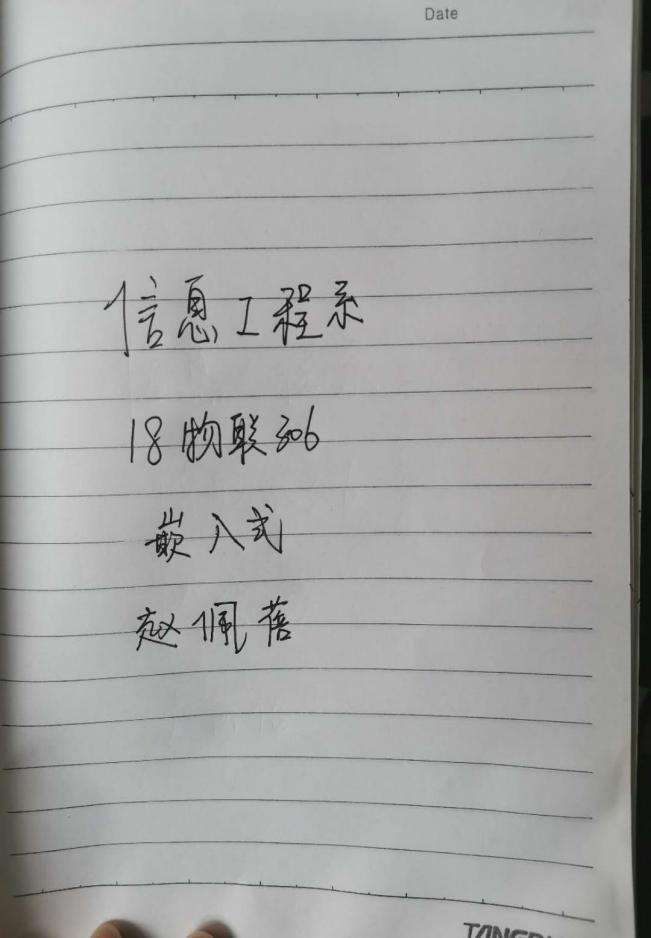 Date
信息工程系
18物联306
嵌入式
赵佩蓓